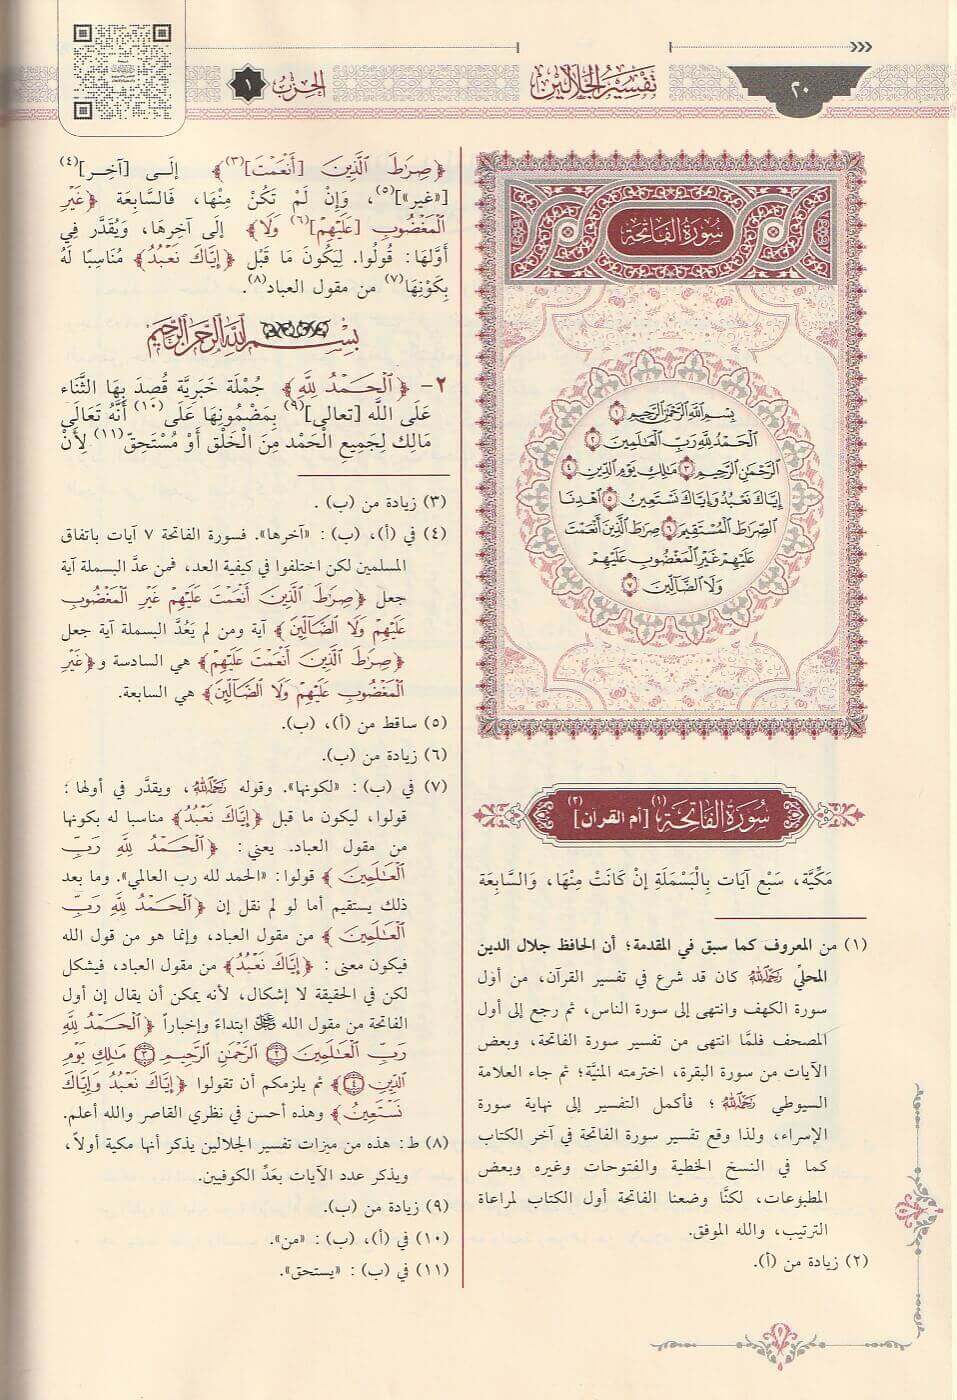 ٢٠
تفسير الجلالين
الحزب ١
سُورَةُ الفَاتِحَةِ
بِسْمِ اللَّهِ الرَّحْمَٰنِ الرَّحِيمِ ١
الْحَمْدُ لِلَّهِ رَبِّ الْعَالَمِينَ ٢
الرَّحْمَٰنِ الرَّحِيمِ ٣ مَالِكِ يَوْمِ الدِّينِ ٤
إِيَّاكَ نَعْبُدُ وَإِيَّاكَ نَسْتَعِينُ ٥ اهْدِنَا
الصِّرَاطَ الْمُسْتَقِيمَ ٦ صِرَاطَ الَّذِينَ أَنْعَمْتَ
عَلَيْهِمْ غَيْرِ الْمَغْضُوبِ عَلَيْهِمْ
وَلَا الضَّالِّينَ ٧
سُورَةُ الفَاتِحَةِ(١) [أم القرآن](٢)
مَكِّيَّة، سَبْع آيَات بِالْبَسْمَلَةِ إنْ كَانَتْ مِنْهَا، وَالسَّابِعَة
(١) من المعروف كما سبق في المقدمة؛ أن الحافظ جلال الدين
المحلي رحمه الله كان قد شرع في تفسير القرآن، من أول
سورة الكهف وانتهى إلى سورة الناس، ثم رجع إلى أول
المصحف فلمَّا انتهى من تفسير سورة الفاتحة، وبعض
الآيات من سورة البقرة، اخترمته المنيَّة؛ ثم جاء العلامة
السيوطي رحمه الله؛ فأكمل التفسير إلى نهاية سورة
الإسراء، ولذا وقع تفسير سورة الفاتحة في آخر الكتاب
كما في النسخ الخطية والفتوحات وغيره وبعض
المطبوعات، لكنَّا وضعنا الفاتحة أول الكتاب لمراعاة
الترتيب، والله الموفق.
(٢) زيادة من (أ).
﴿صِرَٰطَ ٱلَّذِينَ [أَنْعَمْتَ](٣)﴾ إلَـى [آخِرِ](٤)
[«غير»](٥)، وَإِنْ لَمْ تَكُنْ مِنْهَا، فَالسَّابِعَة ﴿غَيْرِ
ٱلْمَغْضُوبِ [عَلَيْهِمْ](٦) وَلَا﴾ إلَى آخِرِهَا، وَيُقَدَّر فِي
أَوَّلهَا: قُولُوا. لِيَكُونَ مَا قَبْل ﴿إِيَّاكَ نَعْبُدُ﴾ مُنَاسِبًا لَهُ
بِكَوْنِهَا(٧) من مقول العباد(٨).
بِسْمِ اللَّهِ الرَّحْمَٰنِ الرَّحِيمِ
٢ - ﴿ٱلْحَمْدُ لِلَّهِ﴾ جُمْلَة خَبَرِيَّة قُصِدَ بِهَا الثَّنَاء
عَلَى اللَّه [تعالى](٩) بِمَضْمُونِهَا عَلَى(١٠) أَنَّهُ تَعَالَى
مَالِك لِجَمِيعِ الْحَمْد مِنَ الْخَلْق أَوْ مُسْتَحِقّ(١١) لِأَنْ
(٣) زيادة من (ب).
(٤) في (أ)، (ب): «آخرها». فسورة الفاتحة ٧ آيات باتفاق
المسلمين لكن اختلفوا في كيفية العد، فمن عدَّ البسملة آية
جعل ﴿صِرَٰطَ ٱلَّذِينَ أَنْعَمْتَ عَلَيْهِمْ غَيْرِ ٱلْمَغْضُوبِ
عَلَيْهِمْ وَلَا ٱلضَّآلِّينَ﴾ آية ومن لم يَعُدَّ البسملة آية جعل
﴿صِرَٰطَ ٱلَّذِينَ أَنْعَمْتَ عَلَيْهِمْ﴾ هي السادسة و﴿غَيْرِ
ٱلْمَغْضُوبِ عَلَيْهِمْ وَلَا ٱلضَّآلِّينَ﴾ هي السابعة.
(٥) ساقط من (أ)، (ب).
(٦) زيادة من (ب).
(٧) في (ب): «لكونها». وقوله رحمه الله، ويقدَّر في أولها:
قولوا، ليكون ما قبل ﴿إِيَّاكَ نَعْبُدُ﴾ مناسبا له بكونها
من مقول العباد. يعني: ﴿ٱلْحَمْدُ لِلَّهِ رَبِّ
ٱلْعَٰلَمِينَ﴾ قولوا: «الحمد لله رب العالمي». وما بعد
ذلك يستقيم أما لو لم نقل إن ﴿ٱلْحَمْدُ لِلَّهِ رَبِّ
ٱلْعَٰلَمِينَ﴾ من مقول العباد، وإنما هو من قول الله
فيكون معنى: ﴿إِيَّاكَ نَعْبُدُ﴾ من مقول العباد، فيشكل
لكن في الحقيقة لا إشكال، لأنه يمكن أن يقال إن أول
الفاتحة من مقول الله عز وجل ابتداءً وإخباراً ﴿ٱلْحَمْدُ لِلَّهِ
رَبِّ ٱلْعَٰلَمِينَ ٢ ٱلرَّحْمَٰنِ ٱلرَّحِيمِ ٣ مَٰلِكِ يَوْمِ
ٱلدِّينِ ٤﴾ ثم يلزمكم أن تقولوا ﴿إِيَّاكَ نَعْبُدُ وَإِيَّاكَ
نَسْتَعِينُ﴾ وهذه أحسن في نظري القاصر والله أعلم.
(٨) ط: هذه من ميزات تفسير الجلالين يذكر أنها مكية أولاً،
ويذكر عدد الآيات بعَدِّ الكوفيين.
(٩) زيادة من (ب).
(١٠) في (أ)، (ب): «من».
(١١) في (ب): «يستحق».